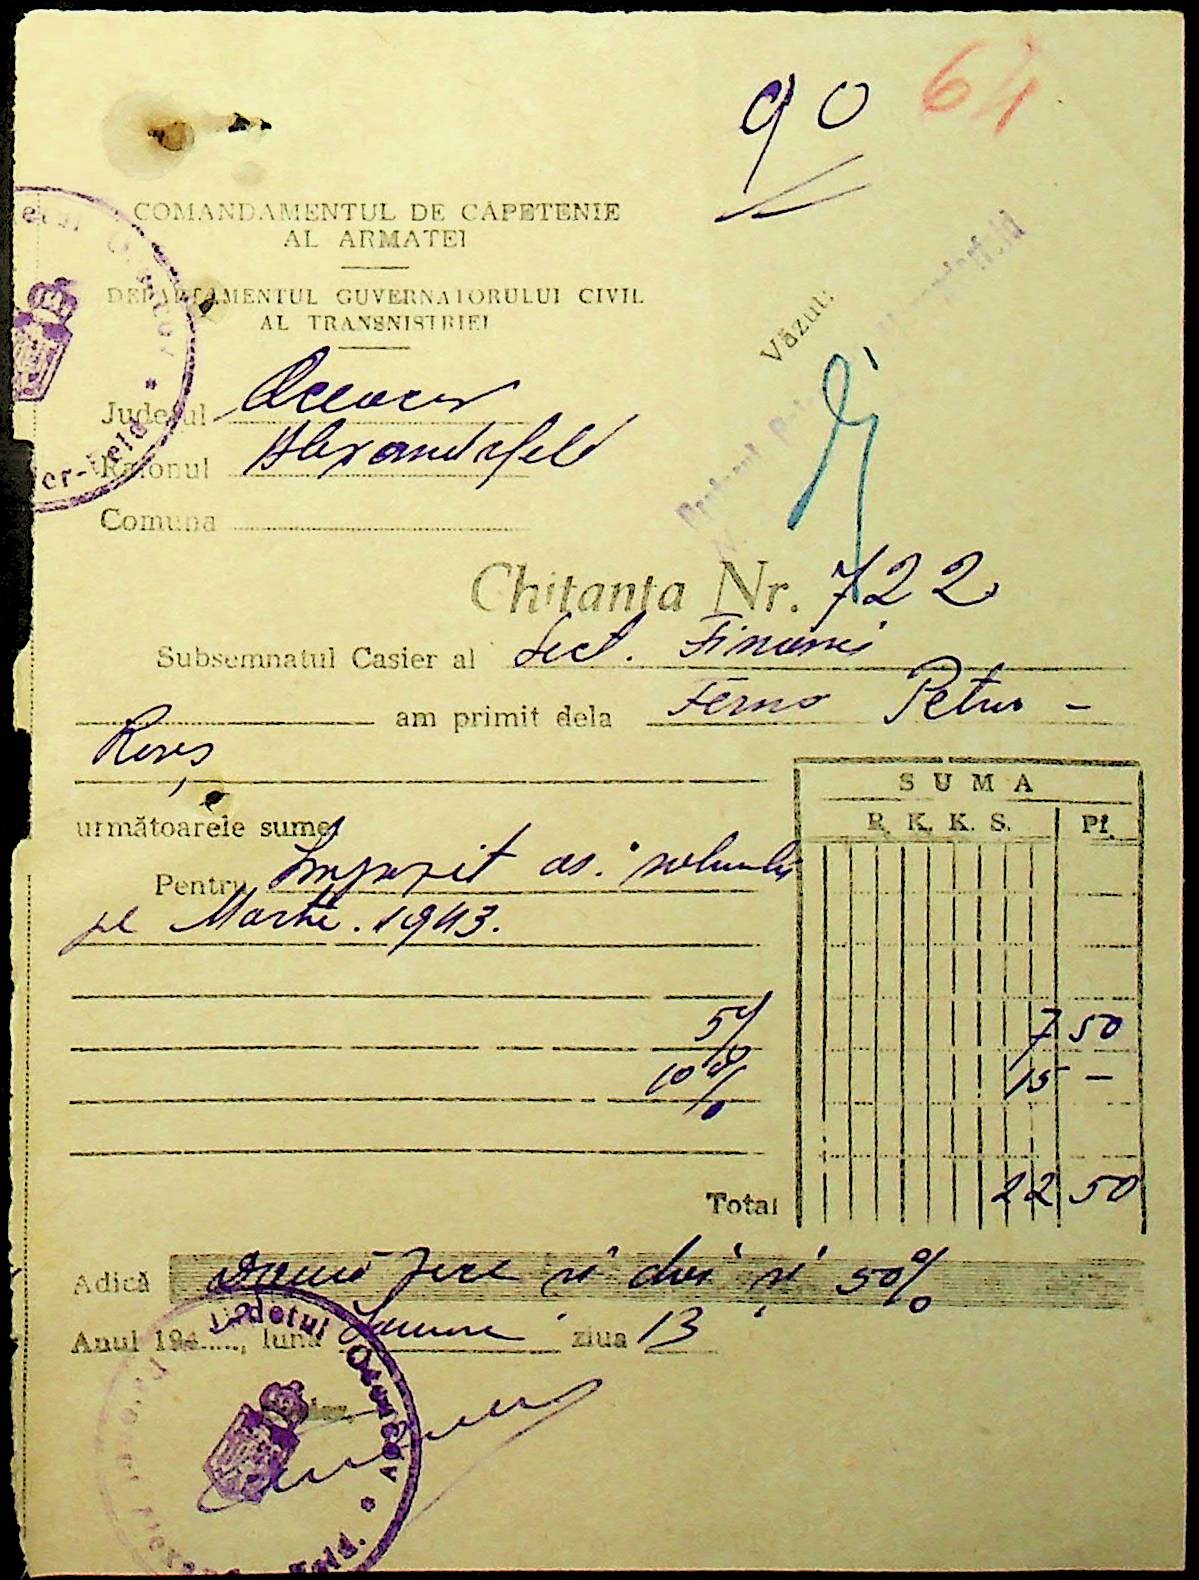 90 64
COMANDAMENTUL DE CĂPETENIE
AL ARMATEI
DEPARTAMENTUL GUVERNATORULUI CIVIL
AL TRANSNISTRIEI
Văzut:
Județul Oceacov
Raionul Alexandrfeld
Comuna
Chitanța Nr. 722
Subsemnatul Casier al Sect. Financi
am primit dela Ferma Petru -
Rareș
următoarele sume:
Pentru Impozit as.
pe Martie. 1943.
SUMA
R. K. K. S. Pf.
5% 7 50
10% 15 —
Total 22 50
Adică două zeci și doi și 50%
Anul 194....., luna ziua 13
Județul Oceacov